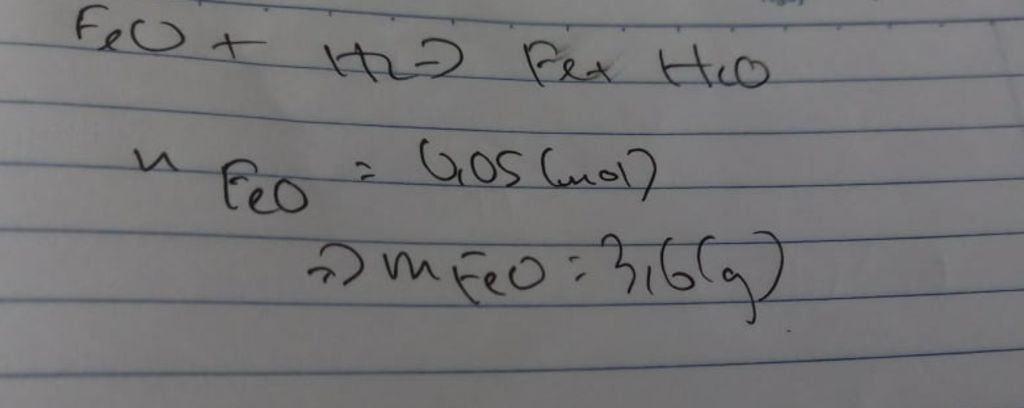 FeO + H2 => Fe + H2O
n FeO = 0,05 (mol)
=> m FeO = 3,6 (g)